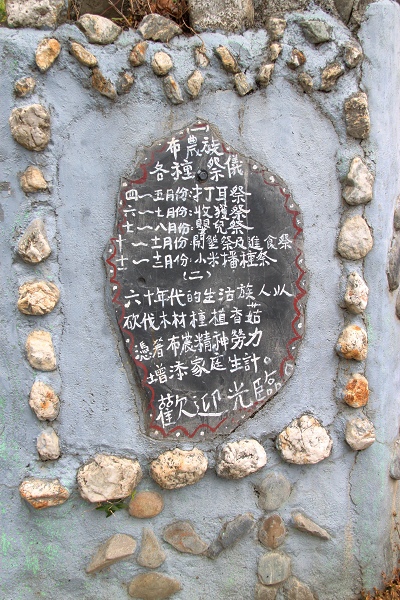 (一)
布農族
各種祭儀
四~五月份:打耳祭
六~七月份:收獲祭
七~八月份:嬰兒祭
十~十一月份:開墾祭及進食祭
十一~十二月份:小米播種祭
(二)
六十年代的生活族人以
砍伐木材種植香菇
憑著布農精神勞力
增添家庭生計。
歡迎光臨